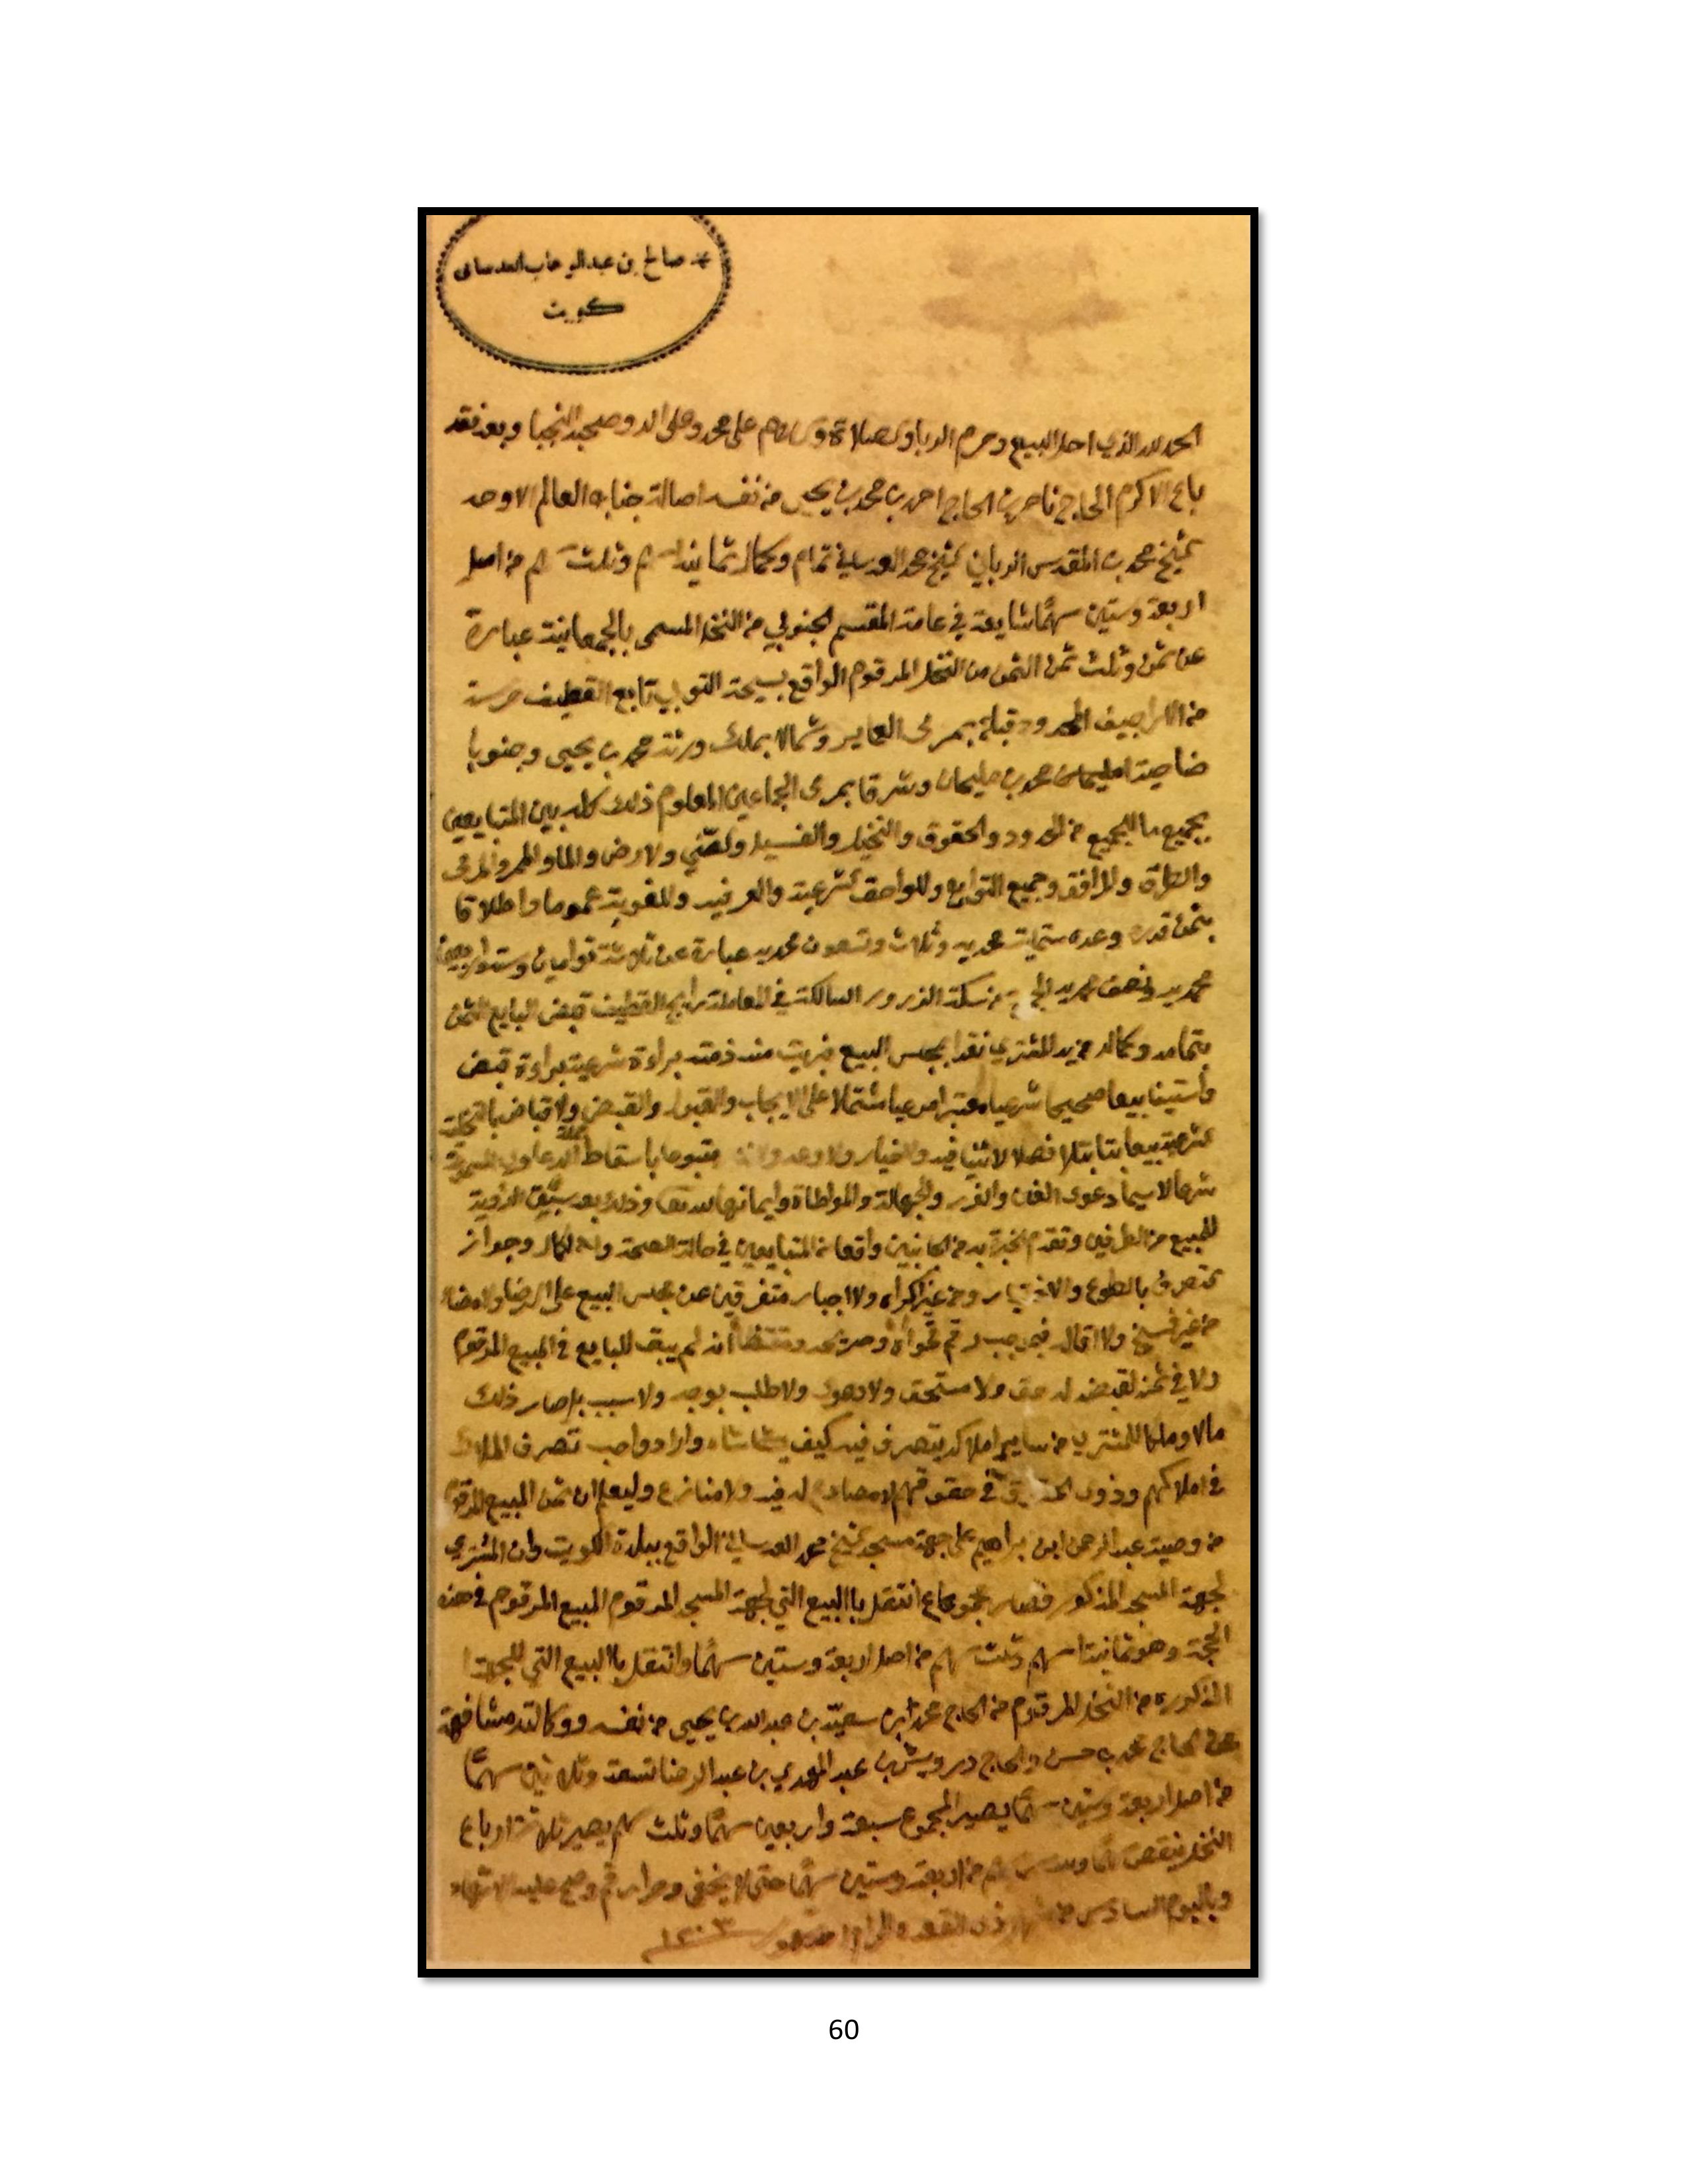 صالح بن عبدالوهاب العدساني
كويت
الحمد لله الذي احل البيع وحرم الربا والصلاة والسلام على محمد وعلى اله وصحبه النجبا وبعد فقد
باع الاكرم الحاج ناصر بن الحاج احمد بن محمد بن يحيى من نفسه اصالة جناب العالم الاوحد
الشيخ محمد بن المقدس الرباني الشيخ محمد العدساني تمام وكمال ثمانية اسهم وثلث سهم من اصل
اربعة وستين سهمًا شايعة في عامة المقسم الجنوبي من النخل المسمى بالجمعانية عبارة
عن ثمن وثلث ثمن الثمن من النخل المرقوم الواقع بسيحة التوبي تابع القطيف حرسة
من الاراجيف المحدود قبلة بمرى العماير وشمالا بملك ورثة محمد بن يحيى وجنوبا
محمد بن سليمان وشرقا بمرى المعلوم ذلك كله بين المتبايعين
بجميع ما للمبيع من الحدود والحقوق والنخيل والفسيل والارض والماء والممر والمرمى
والطرق والمرافق وجميع التوابع واللواحق الشرعية والعرفيه واللغوية عموما واطلاقا
بثمن قدره وعده ستماية محمديه وثلاث وتسعون محمديه عبارة عن ثلاثة توامين
محمديه ونصف محمديه من سكة السالكة في المعاملة القطيف قبض البايع الثمن
بتمامه وكماله من يد المشتري نقدا بمجلس البيع فبريت منه ذمته براءة شرعية براءة قبض
بيعا صحيحا شرعيا معتبرا مرعيا مشتملا على الايجاب والقبول والقبض والاقباض بالتخلية
الشرعية بيعا بتا بتلا فصلا لا ثنيا فيه ولا خيار ولا وعد متبوعا باسقاط الدعاوى
شرعا لا سيما دعوى الغبن والغرر والجهالة والمواطاة وايمانها وذلك بعد سبق الرؤية
للمبيع من الطرفين وتقدم الخبرة به من الجانبين واقعا من المتبايعين في حالة الصحة والكمال وجواز
التصرف بالطوع والاختيار ومن غير اكراه ولا اجبار متفرقين عن مجلس البيع على الرضا والامضاء
من غير فسخ ولا اقاله فبموجب رقم انه لم يبق للبايع في المبيع المرقوم
ولا في ثمنه لقبضه له حق ولا مستحق ولا دعوى ولا طلب بوجه ولا سبب بل صار ذلك
مالا وملكا للمشتري من ساير املاكه يتصرف فيه كيف شاء واراد تصرف الملاك
في املاكهم وذوي الحقوق في حقوقهم له فيه ولا منازع وليعلم ان ثمن المبيع المرقوم
من وصية عبدالرحمن ابن ابراهيم على جهة مسجد الشيخ محمد العدساني الواقع ببلدة الكويت وان المشتري
لجهة المسجد المذكور فصار مجموع ما انتقل باالبيع التي لجهة المسجد المرقوم المبيع المرقوم في هذه
الحجة وهو ثمانية اسهم وثلث سهم من اصل اربعة وستين سهمًا وانتقل باالبيع التي للجهة
المذكوره من النخل المرقوم من الحاج محمد ابن سعيد بن عبدالله بن يحيى من نفسه ووكالته مشافهة
عن الحاج محمد بن حسن والحاج درويش بن عبد المهدي بن عبد الرضا تسعة وثلاثين سهمًا
من اصل اربعة وستين سهمًا يصير المجموع سبعة واربعين سهمًا وثلث سهم يصير ثلاثة ارباع
النخل ينقص من اربعة وستين سهمًا حتى لا يخفى وحرر ورقم وصح عليه الاشهاد
وباليوم السادس من شهر ذي القعده الحرام ١٢٠٣
60